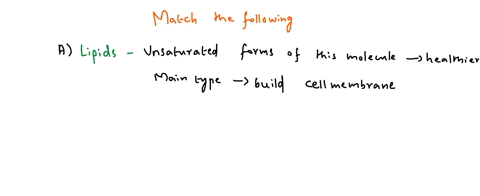 Match the following
A) Lipids - Unsaturated forms of this molecule → healthier
Main type → build cell membrane